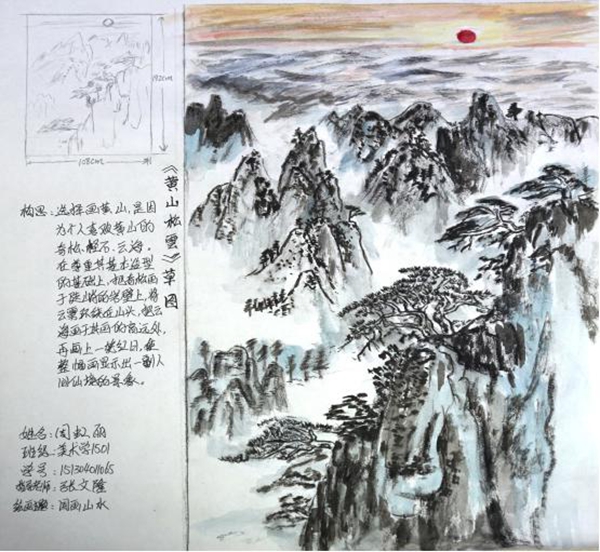 192cm
108cm
《黄山松雲》草图
构思:选择画黄山,是因
为个人喜欢黄山的
奇松、怪石、云海。
在尊重其基本造型
的基础上,把奇松画
于陡峭的岩壁上,将
云雾环绕在山头,把云
海画于其画的高远处,
再画上一轮红日,使
整幅画显示出一副人
间仙境的景象。
姓名:
班级:美术学1501
学号:151304011065
指导老师:张文隆
国画山水